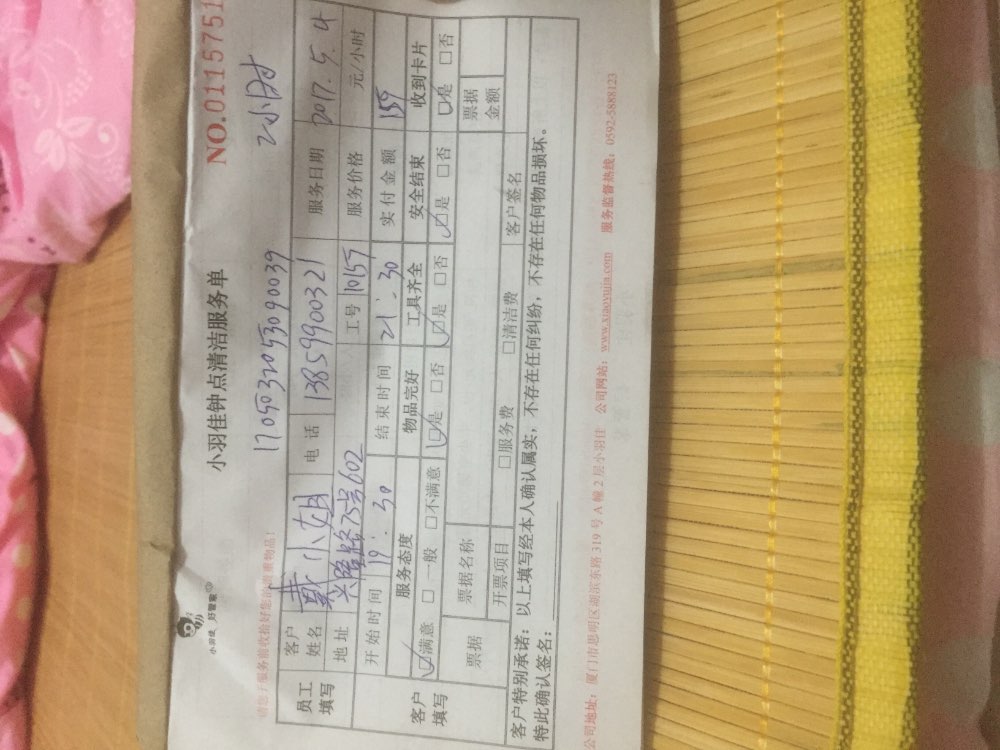 小羽佳 好管家
小羽佳钟点清洁服务单
NO.01157515
请您于服务前收捡好您的贵重物品!
1705032053090039
2小时
员工填写
客户姓名 戴小姐 电话 13859900321 服务日期 2017.5.4
地址 兴隆路75号602 工号 10157 服务价格 元/小时
开始时间 19:30 结束时间 21:30 实付金额 159
客户填写
服务态度 物品完好 工具齐全 安全结束 收到卡片
☑满意 □一般 □不满意 ☑是 □否 ☑是 □否 ☑是 □否 ☑是 □否
票据 票据名称 票据金额
开票项目 □服务费 □清洁费 客户签名
客户特别承诺:以上填写经本人确认属实,不存在任何纠纷,不存在任何物品损坏。
特此确认签名:
公司地址:厦门市思明区湖滨东路319号A幢2层小羽佳 公司网站:www.xiaoyujia.com 服务监督热线:0592-5888123